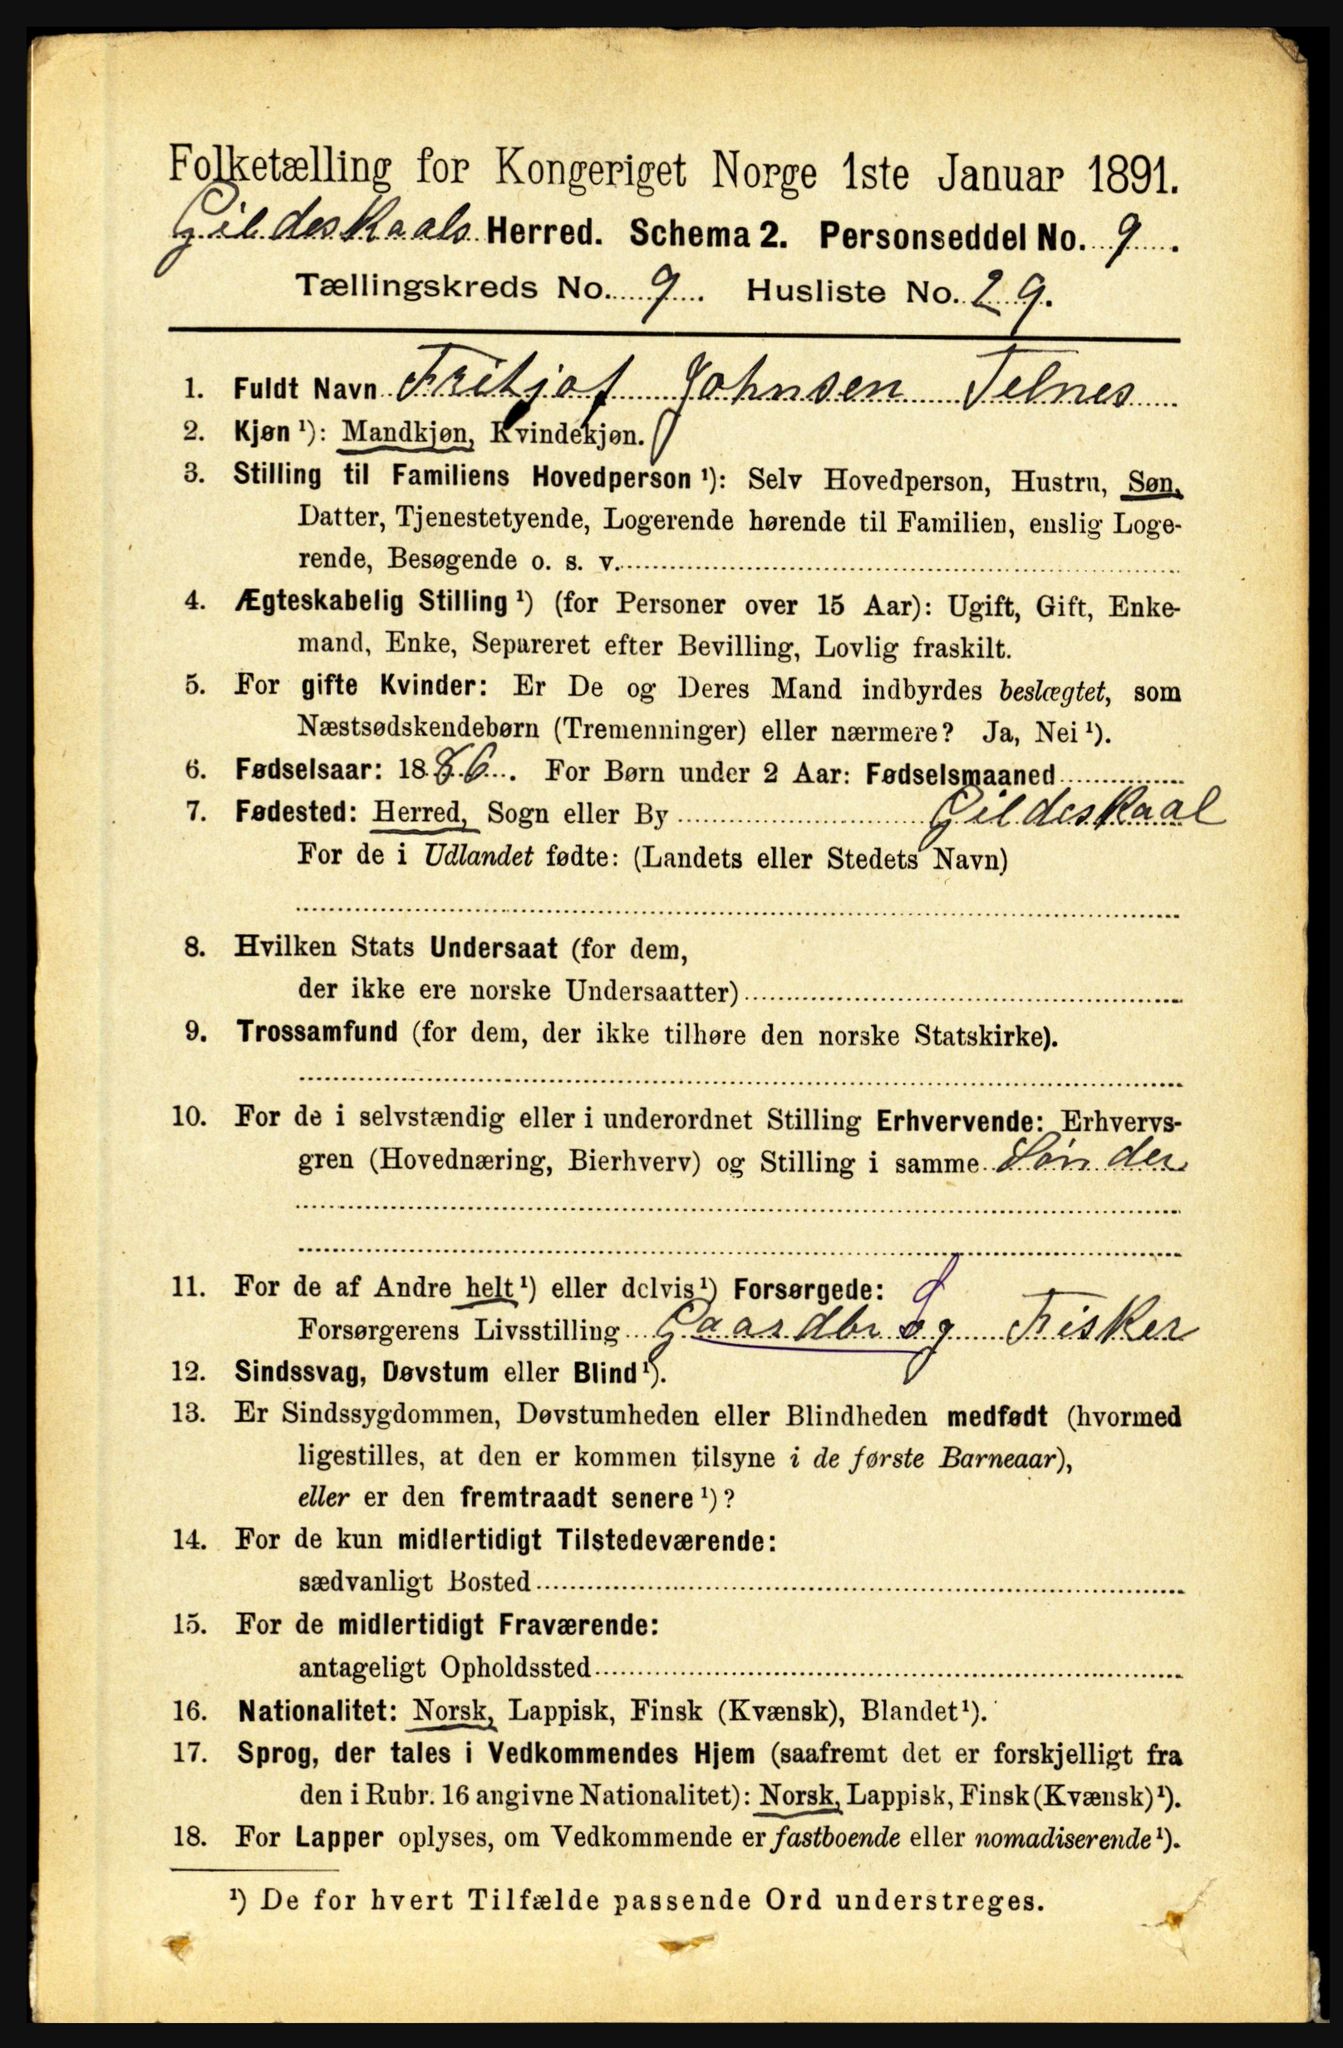 Folketælling for Kongeriget Norge 1ste Januar 1891.
Gildeskaals Herred. Schema 2. Personseddel No. 9.
Tællingskreds No. 9. Husliste No. 29.
1. Fuldt Navn Fritjof Johnsen Telnes
2. Kjøn ¹): Mandkjøn, Kvindekjøn.
3. Stilling til Familiens Hovedperson ¹): Selv Hovedperson, Hustru, Søn,
Datter, Tjenestetyende, Logerende hørende til Familien, enslig Loge-
rende, Besøgende o. s. v.
4. Ægteskabelig Stilling ¹) (for Personer over 15 Aar): Ugift, Gift, Enke-
mand, Enke, Separeret efter Bevilling, Lovlig fraskilt.
5. For gifte Kvinder: Er De og Deres Mand indbyrdes beslægtet, som
Næstsødskendebørn (Tremenninger) eller nærmere? Ja, Nei ¹).
6. Fødselsaar: 1886. For Børn under 2 Aar: Fødselsmaaned
7. Fødested: Herred, Sogn eller By Gildeskaal
For de i Udlandet fødte: (Landets eller Stedets Navn)
8. Hvilken Stats Undersaat (for dem,
der ikke ere norske Undersaatter)
9. Trossamfund (for dem, der ikke tilhøre den norske Statskirke).
10. For de i selvstændig eller i underordnet Stilling Erhvervende: Erhvervs-
gren (Hovednæring, Bierhverv) og Stilling i samme Sønder
11. For de af Andre helt ¹) eller delvis ¹) Forsørgede:
Forsørgerens Livsstilling Gaardbr og Fisker
12. Sindssvag, Døvstum eller Blind ¹).
13. Er Sindssygdommen, Døvstumheden eller Blindheden medfødt (hvormed
ligestilles, at den er kommen tilsyne i de første Barneaar),
eller er den fremtraadt senere ¹)?
14. For de kun midlertidigt Tilstedeværende:
sædvanligt Bosted
15. For de midlertidigt Fraværende:
antageligt Opholdssted
16. Nationalitet: Norsk, Lappisk, Finsk (Kvænsk), Blandet ¹).
17. Sprog, der tales i Vedkommendes Hjem (saafremt det er forskjelligt fra
den i Rubr. 16 angivne Nationalitet): Norsk, Lappisk, Finsk (Kvænsk) ¹).
18. For Lapper oplyses, om Vedkommende er fastboende eller nomadiserende ¹).
¹) De for hvert Tilfælde passende Ord understreges.